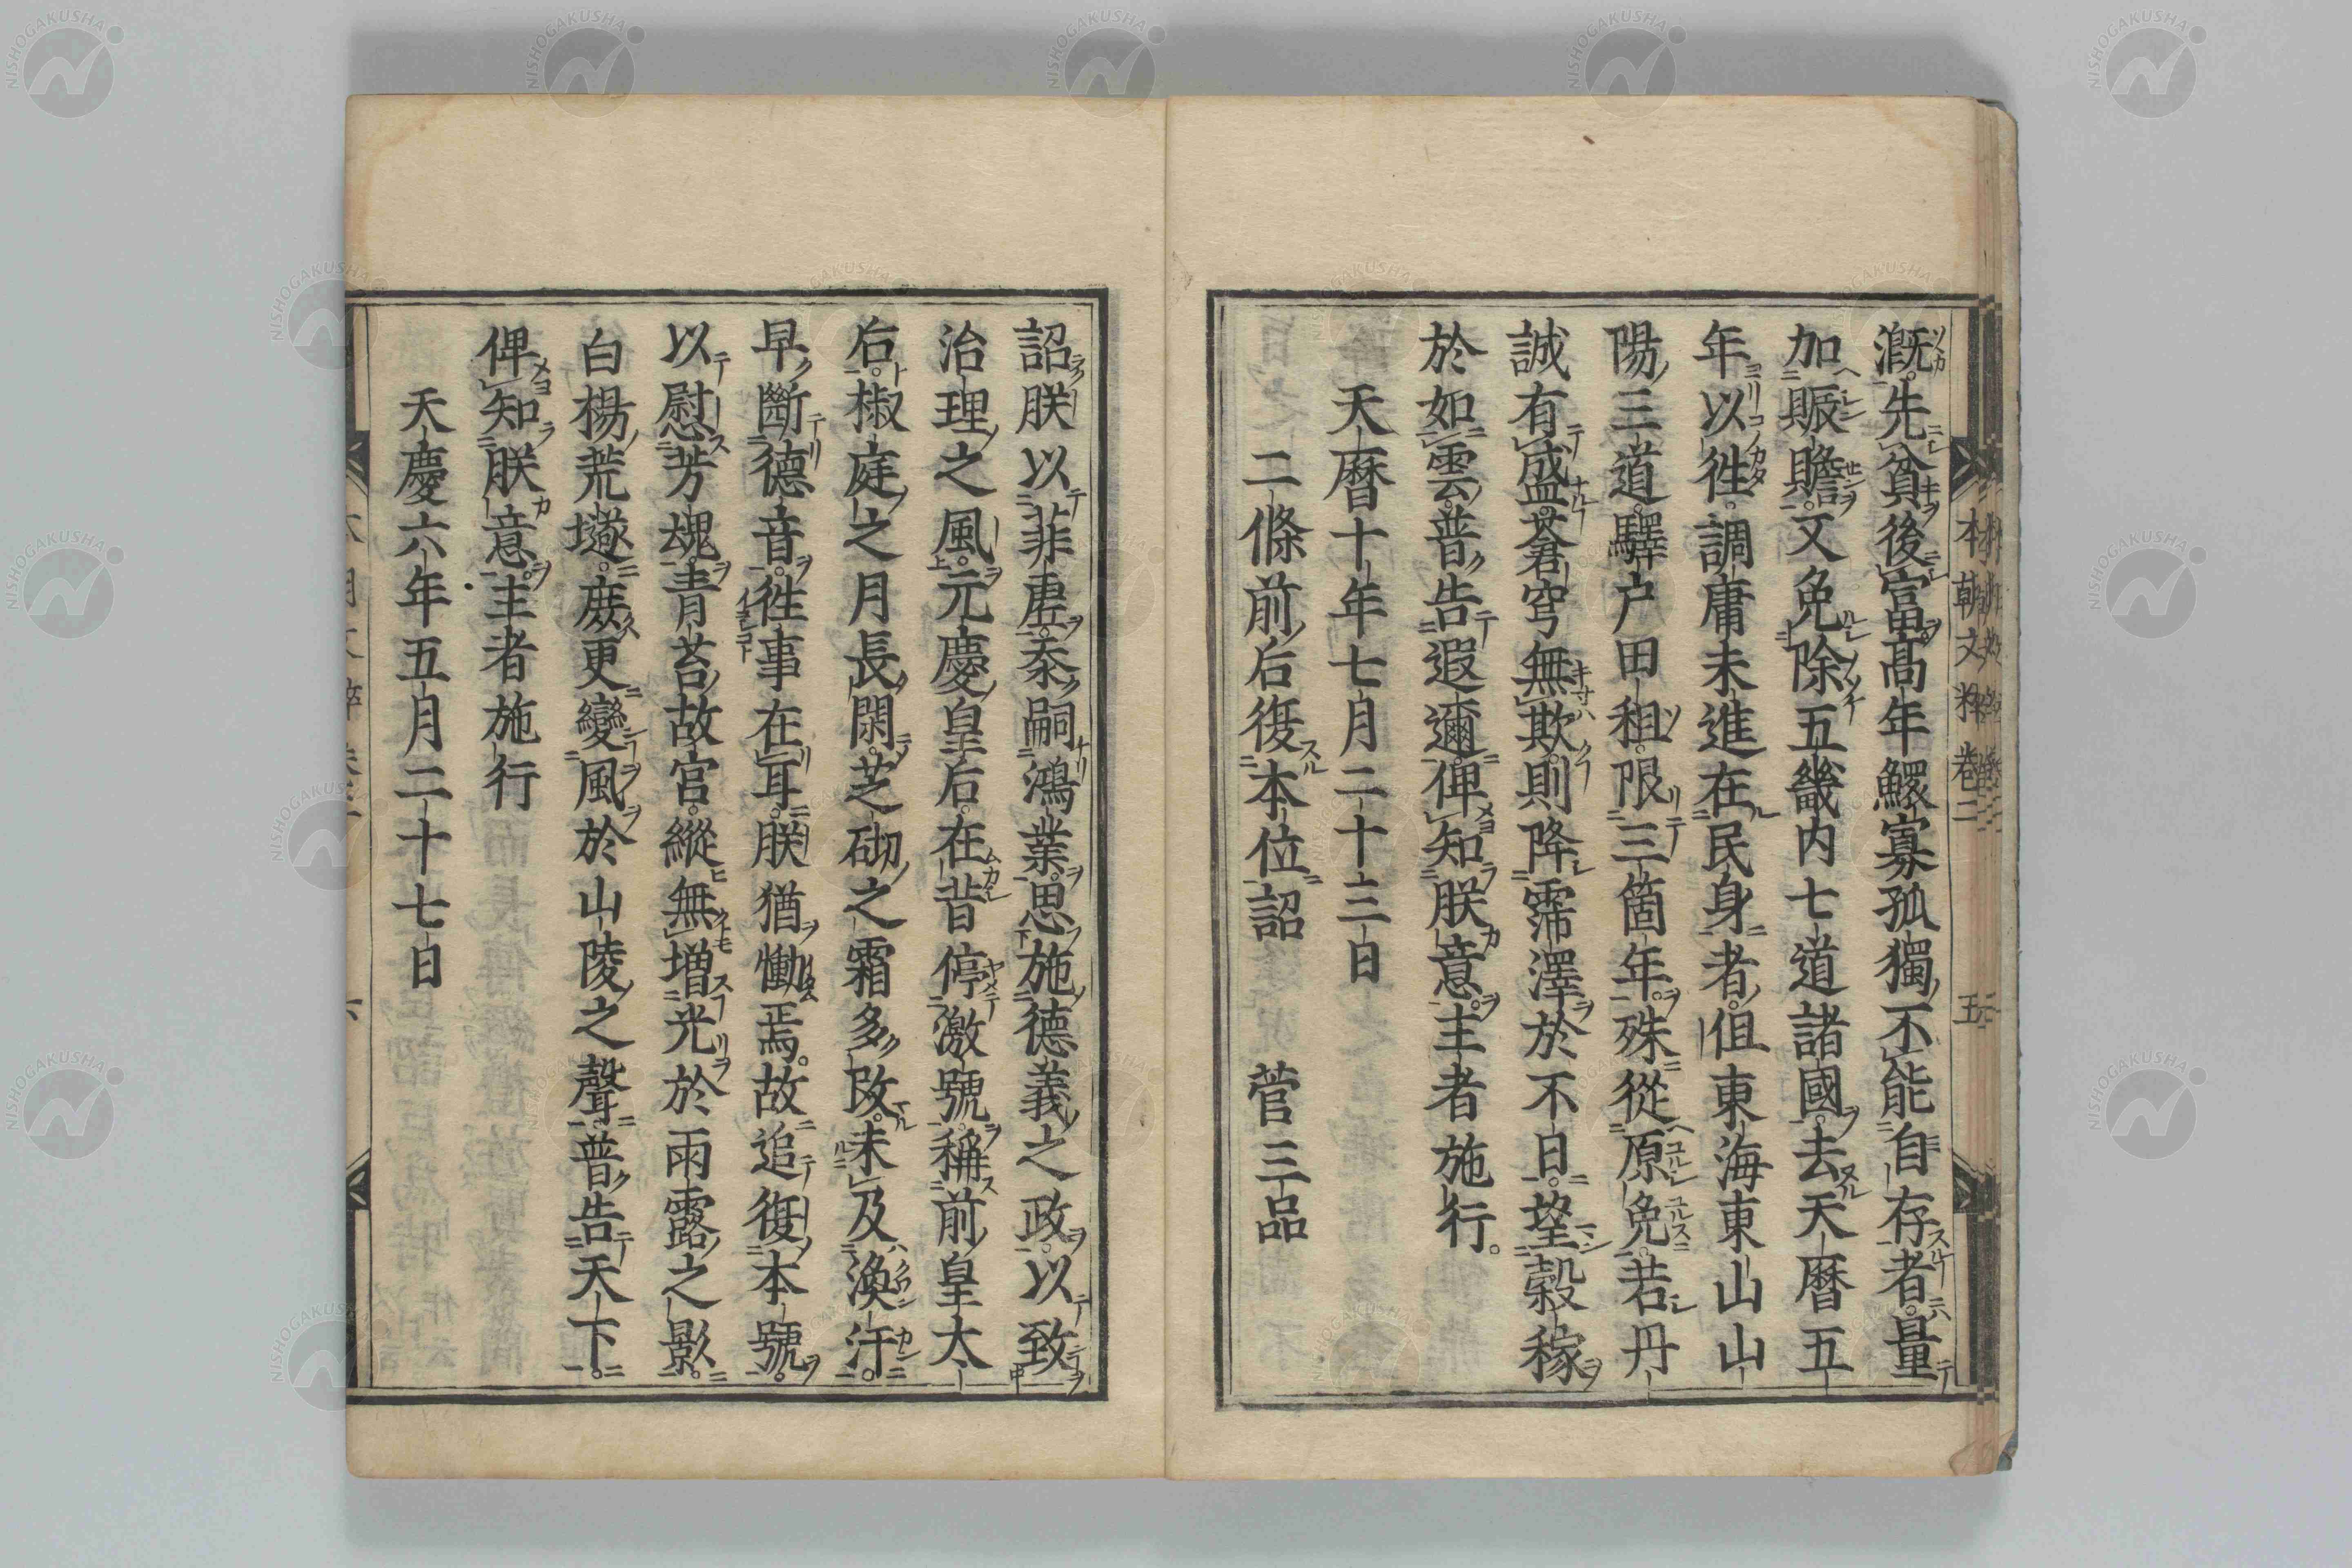 漑先貧後富高年鰥寡孤獨不能自存者量
加賑贍又免除五畿内七道諸國去天曆五
年以徃調庸未進在民身者但東海東山山
陽三道驛戸田租限三箇年殊從原免若丹
誠有感蒼穹無欺則降霈澤於不日望穀稼
於如雲普告遐邇俾知朕意主者施行
天曆十年七月二十三日
二條前后復本位詔 菅三品
詔朕以菲虛忝嗣鴻業思施德義之政以致
治理之風元慶皇后在昔停激號稱前皇太
后椒庭之月長閑芝砌之霜多改未及渙汗
早斷德音徃事在耳朕猶慟焉故追復本號
以慰芳魂靑苔故宮縱無增光於雨露之影
白楊荒墳庶更變風於山陵之聲普告天下
俾知朕意主者施行
天慶六年五月二十七日
本朝文粹卷二 五
NISHOGAKUSHA